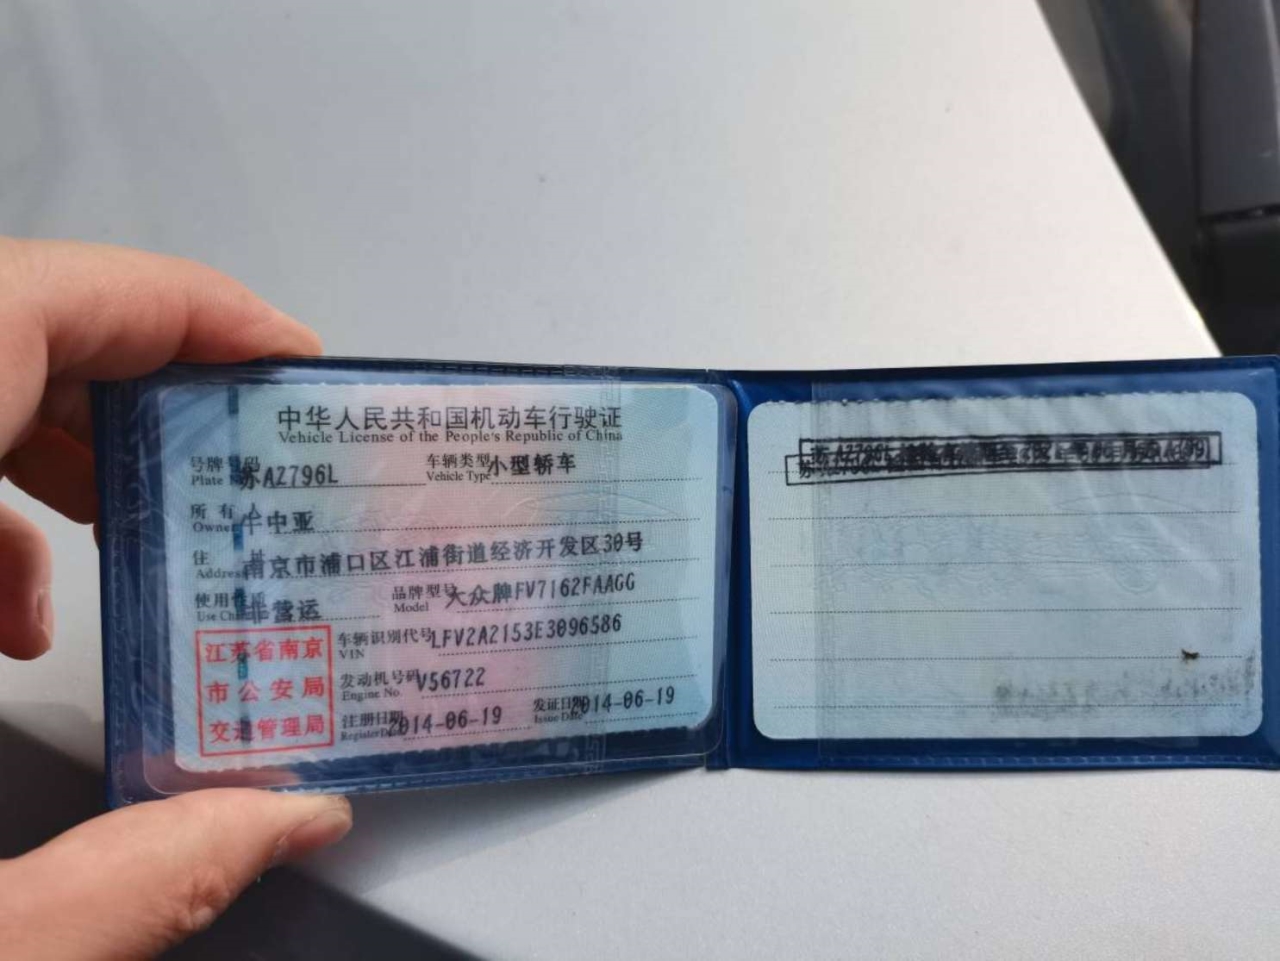 中华人民共和国机动车行驶证
Vehicle License of the People's Republic of China
号牌号码 苏AZ796L 车辆类型 小型轿车
Plate Vehicle Type
所有人 牛中亚
Owner
住 南京市浦口区江浦街道经济开发区30号
Address
使用性质 非营运 品牌型号 大众牌FV7162FAAGG
Use Model
江苏省南京
市公安局
交通管理局
车辆识别代号 LFV2A2153E3096586
VIN
发动机号码 V56722
Engine No.
注册日期 2014-06-19 发证日期 2014-06-19
Register Issue Date
苏AZ796L